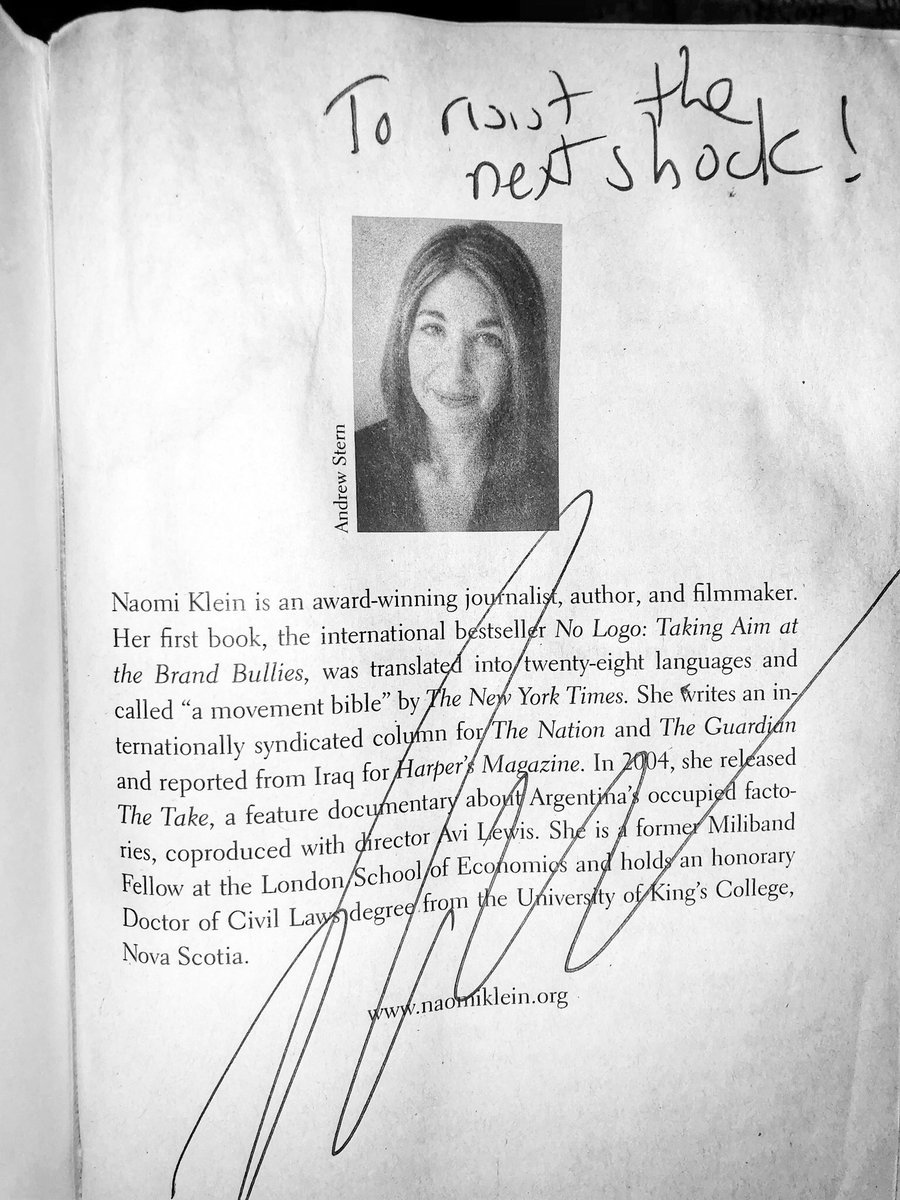 To resist the
next shock!
Andrew Stern
Naomi Klein is an award-winning journalist, author, and filmmaker.
Her first book, the international bestseller No Logo: Taking Aim at
the Brand Bullies, was translated into twenty-eight languages and
called “a movement bible” by The New York Times. She writes an in-
ternationally syndicated column for The Nation and The Guardian
and reported from Iraq for Harper’s Magazine. In 2004, she released
The Take, a feature documentary about Argentina’s occupied facto-
ries, coproduced with director Avi Lewis. She is a former Miliband
Fellow at the London School of Economics and holds an honorary
Doctor of Civil Laws degree from the University of King’s College,
Nova Scotia.
www.naomiklein.org